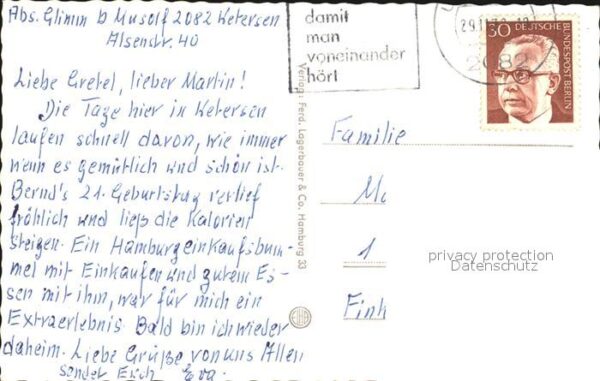 Abs. Glimm b Musolf 2082 Uetersen
Alsenstr. 40
damit
man
voneinander
hört
2082
30 DEUTSCHE
BUNDESPOST BERLIN
Liebe Gretel, lieber Martin!
Die Tage hier in Uetersen
laufen schnell davon, wie immer
wenn es gemütlich und schön ist.
Bernd's 21. Geburtstag verlief
fröhlich und ließ die Kalorien
steigen. Ein Hamburgeinkaufsbum-
mel mit Einkaufen und gutem Es-
sen mit ihm, war für mich ein
Extraerlebnis. Bald bin ich wieder
daheim. Liebe Grüße von uns Allen
sendet Euch Eva.
Verlag: Ferd. Lagerbauer & Co. Hamburg 33
Familie
M
1
Fink
privacy protection
Datenschutz